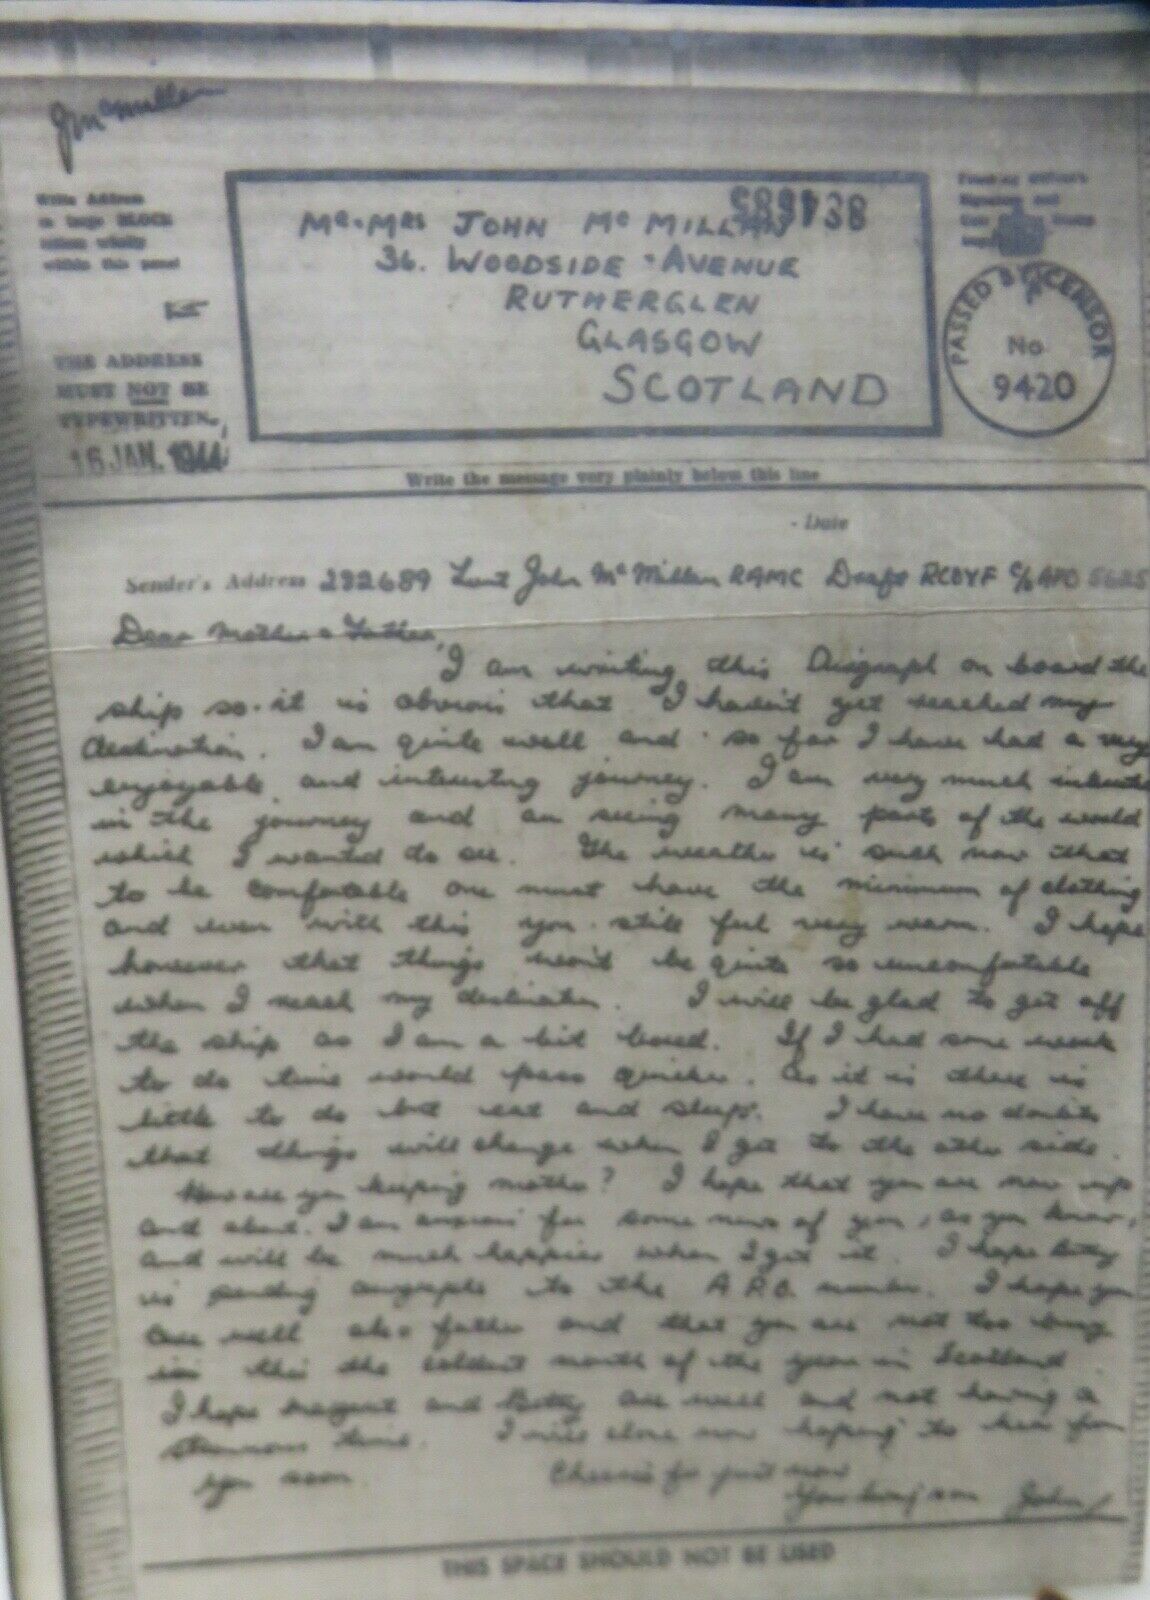 J McMillan
Write Address
in large BLOCK
letters wholly
within this panel
THE ADDRESS
MUST NOT BE
TYPEWRITTEN.
16 JAN. 1944
MR. MRS JOHN McMILLAN
36. WOODSIDE AVENUE
RUTHERGLEN
GLASGOW
SCOTLAND
PASSED BY CENSOR
No
9420
Write the message very plainly below this line
Date
Sender's Address 292689 Lieut John McMillan RAMC Draft RCDYF c/o APO
Dear Mother & Father,
I am writing this Airgraph on board the
ship so it is obvious that I haven't yet reached my
destination. I am quite well and so far I have had a very
enjoyable and interesting journey. I am very much interested
in the journey and am seeing many parts of the world
which I wanted to see. The weather is such now that
to be comfortable one must have the minimum of clothing
and even with this you still feel very warm. I hope
however that things won't be quite so uncomfortable
when I reach my destination. I will be glad to get off
the ship as I am a bit bored. If I had some work
to do time would pass quicker. As it is there is
little to do but eat and sleep. I have no doubts
that things will change when I get to the other side.
How are you keeping mother? I hope that you are now up
and about. I am anxious for some news of you, as you know,
and will be much happier when I get it. I hope Betty
is sending airgraphs to the A.P.O. number. I hope you
are well also father and that you are not too busy
in this the coldest month of the year in Scotland
I hope Margaret and Betty are well and not having a
strenuous time. I will close now hoping to hear from
you soon
Cheerio for just now
Your loving son John
THIS SPACE SHOULD NOT BE USED